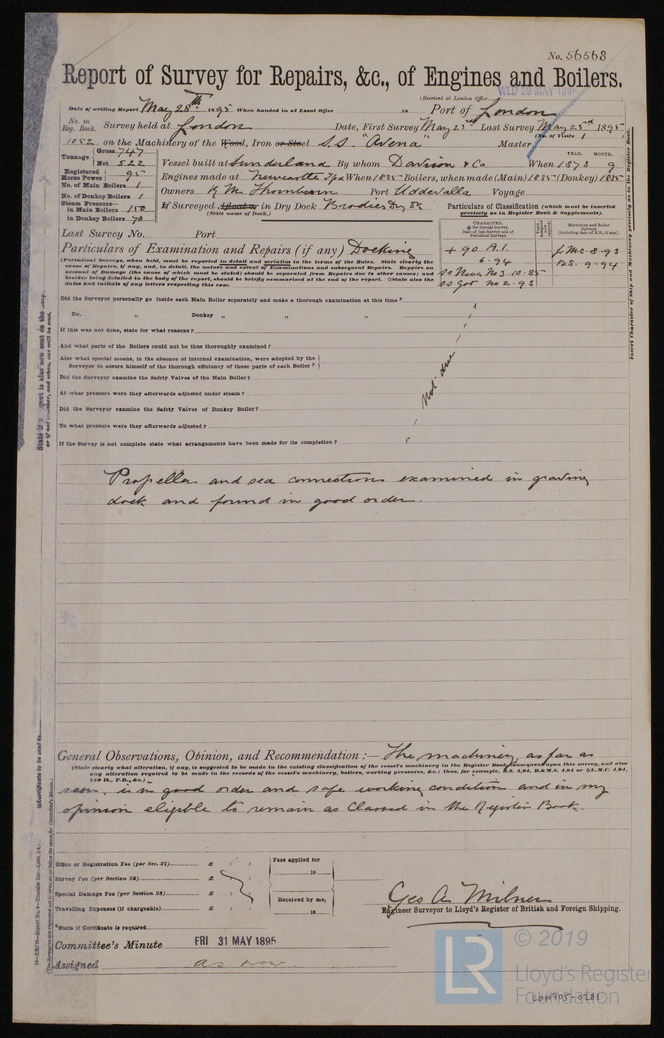 No. 56568
Report of Survey for Repairs, &c., of Engines and Boilers.
WED 29 MAY 1895
(Received at London Office
Date of writing Report May 28th 1895 When handed in at Local Office 18 Port of London
No. in Reg. Book. Survey held at London Date, First Survey May 23rd Last Survey May 25th 1895
(No. of Visits 1)
1052 on the Machinery of the Wood, Iron or Steel S.S. "Avena" Master
Tonnage Gross 747 Net 522
Vessel built at Sunderland By whom Davison & Co When 1873 9
YEAR. MONTH.
Registered Horse Power 95
Engines made at Newcastle When 1885 Boilers, when made (Main) 1885 (Donkey) 1885
No. of Main Boilers 1
No. of Donkey Boilers 1
Owners Port Uddevalla Voyage
Steam Pressure in Main Boilers 150
in Donkey Boilers 70
If Surveyed Afloat or in Dry Dock Brodies Dry Dk
(State name of Dock.)
Particulars of Classification (which must be inserted precisely as in Register Book & Supplements).
Last Survey No. Port
Particulars of Examination and Repairs (if any) Docking
+ 90 A.1.
6.94
SS No 3-10-85
SS No 2-93
LMC 8-93
BS. 9-94
(Periodical Surveys, when held, must be reported in detail and seriatim in the terms of the Rules. State clearly the
cause of Repairs, if any, and, in detail, the nature and extent of Examinations and subsequent Repairs. Repairs on
account of Damage (the cause of which must be stated) should be separated from Repairs due to other causes; and
besides being detailed in the body of the report, should be briefly summarised at the end of the report. State also the
dates and initials of any letters respecting this case.
Did the Surveyor personally go inside each Main Boiler separately and make a thorough examination at this time?
Do. " Donkey " " "
If this was not done, state for what reasons?
And what parts of the Boilers could not be thus thoroughly examined?
Also what special means, in the absence of internal examination, were adopted by the
Surveyor to assure himself of the thorough efficiency of these parts of each Boiler?
Not due
Did the Surveyor examine the Safety Valves of the Main Boiler?
At what pressure were they afterwards adjusted under steam?
Did the Surveyor examine the Safety Valves of Donkey Boiler?
To what pressure were they afterwards adjusted?
If the Survey is not complete state what arrangements have been made for its completion?
Propeller and sea connections examined in graving
dock and found in good order.
General Observations, Opinion, and Recommendation:— The machinery as far as
(State clearly what alteration, if any, is suggested to be made in the existing classification of the vessel's machinery in the Register Book consequent upon this survey, and also
any alteration required to be made in the records of the vessel's machinery, boilers, working pressures, &c.: thus, for example, B.S. 4,94, B.&M.S. 4,94 or L.M.C. 4,94,
seen, is in good order and safe working condition and in my
opinion eligible to remain as Classed in the Register Book.
Office or Registration Fee (per Sec. 27) £
Fees applied for
18
Survey Fee (per Section 28) £
Special Damage Fee (per Section 28) £
Received by me,
Travelling Expenses (if chargeable) £
18
Geo A. Milner
Engineer Surveyor to Lloyd's Register of British and Foreign Shipping.
*State if Certificate is required
Committee's Minute FRI 31 MAY 1895
Assigned as now
Insert Character of Ship and Machinery precisely as in the Register Book.
LR
© 2019
Lloyd's Register
Foundation